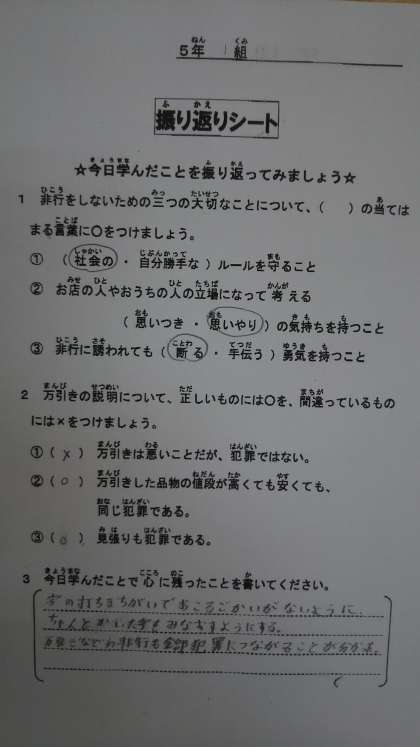 5年 1組
振り返りシート
☆今日学んだことを振り返ってみましょう☆
1 非行をしないための三つの大切なことについて、( )の当ては
まる言葉に○をつけましょう。
① (社会の・自分勝手な)ルールを守ること
② お店の人やおうちの人の立場になって考える
(思いつき・思いやり)の気持ちを持つこと
③ 非行に誘われても(断る・手伝う)勇気を持つこと
2 万引きの説明について、正しいものには○を、間違っているもの
には×をつけましょう。
①(×)万引きは悪いことだが、犯罪ではない。
②(○)万引きした品物の値段が高くても安くても、
同じ犯罪である。
③(○)見張りも犯罪である。
3 今日学んだことで心に残ったことを書いてください。
字の打ちまちがいでおこるごかいがないように
ちゃんとかいた字もみなおすようにする。
非行も全部犯罪につながることが分かった。